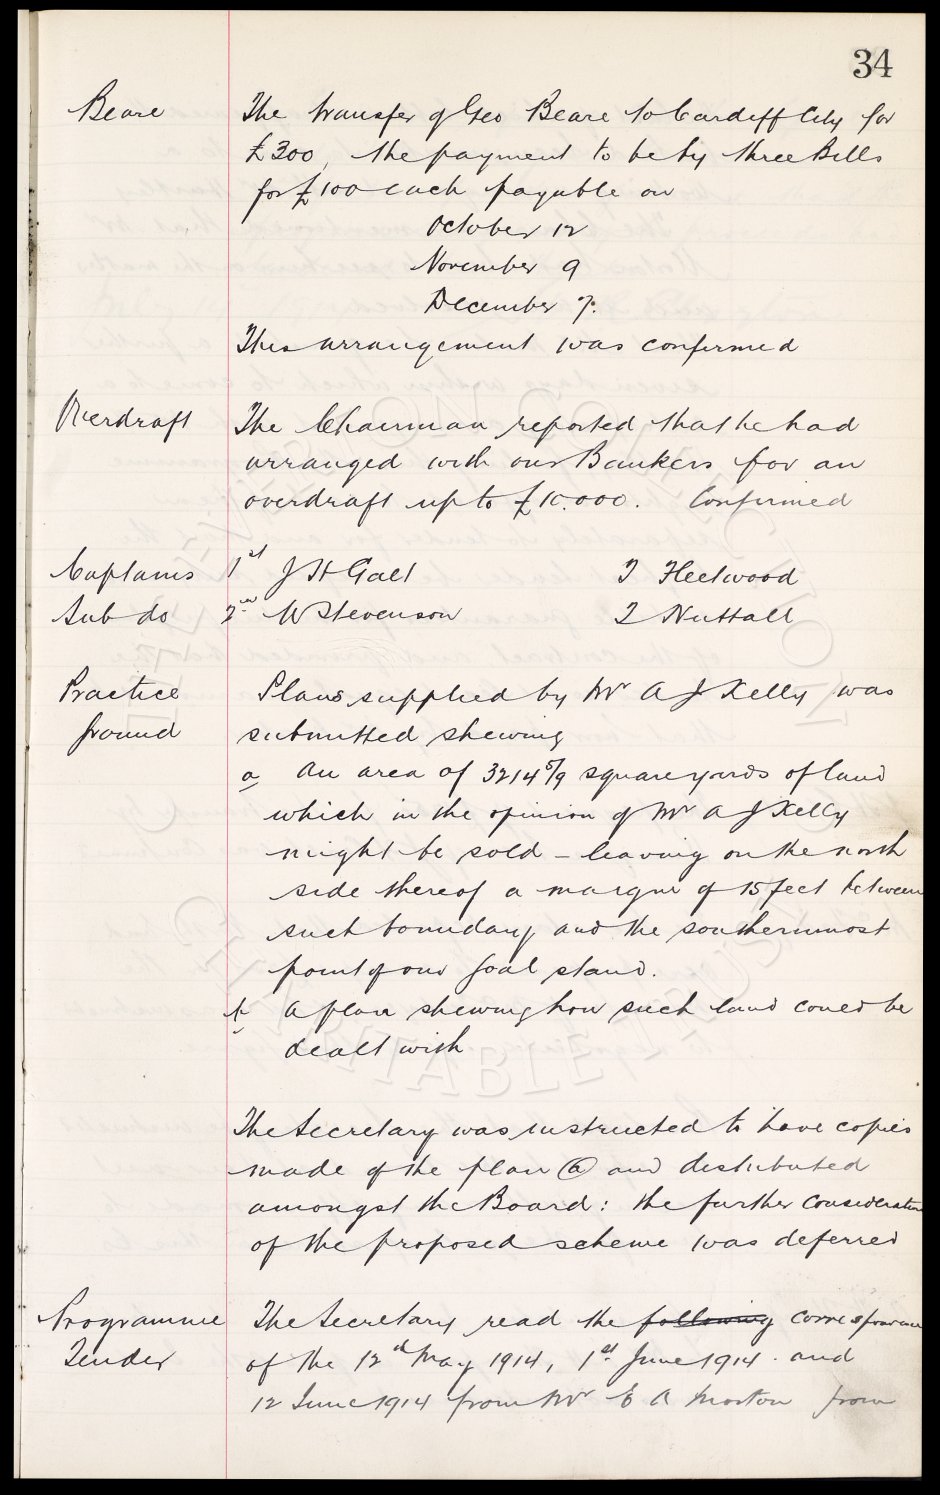 34
Beare
The transfer of Geo Beare to Cardiff City for
£300, the payment to be by three Bills
for £100 each payable on
October 12
November 9
December 7.
This arrangement was confirmed
Overdraft
The Chairman reported that he had
arranged with our Bankers for an
overdraft up to £10.000. Confirmed
Captains 1st J H Galt T Fleetwood
Sub do 2nd W Stevenson T Nuttall
Practice
Ground
Plans supplied by Mr A J Kelly was
submitted shewing
a An area of 3214 5/9 square yards of land
which in the opinion of Mr A J Kelly
might be sold - leaving on the north
side thereof a margin of 15 feet between
such boundary and the southernmost
point of our Goal stand.
b A plan shewing how such land could be
dealt with
The Secretary was instructed to have copies
made of the plan (a) and distributed
amongst the Board: the further consideration
of the proposed scheme was deferred
Programme
Tender
The Secretary read the following correspondence
of the 12th May 1914, 1st June 1914. and
12 June 1914 from Mr E A Morton from